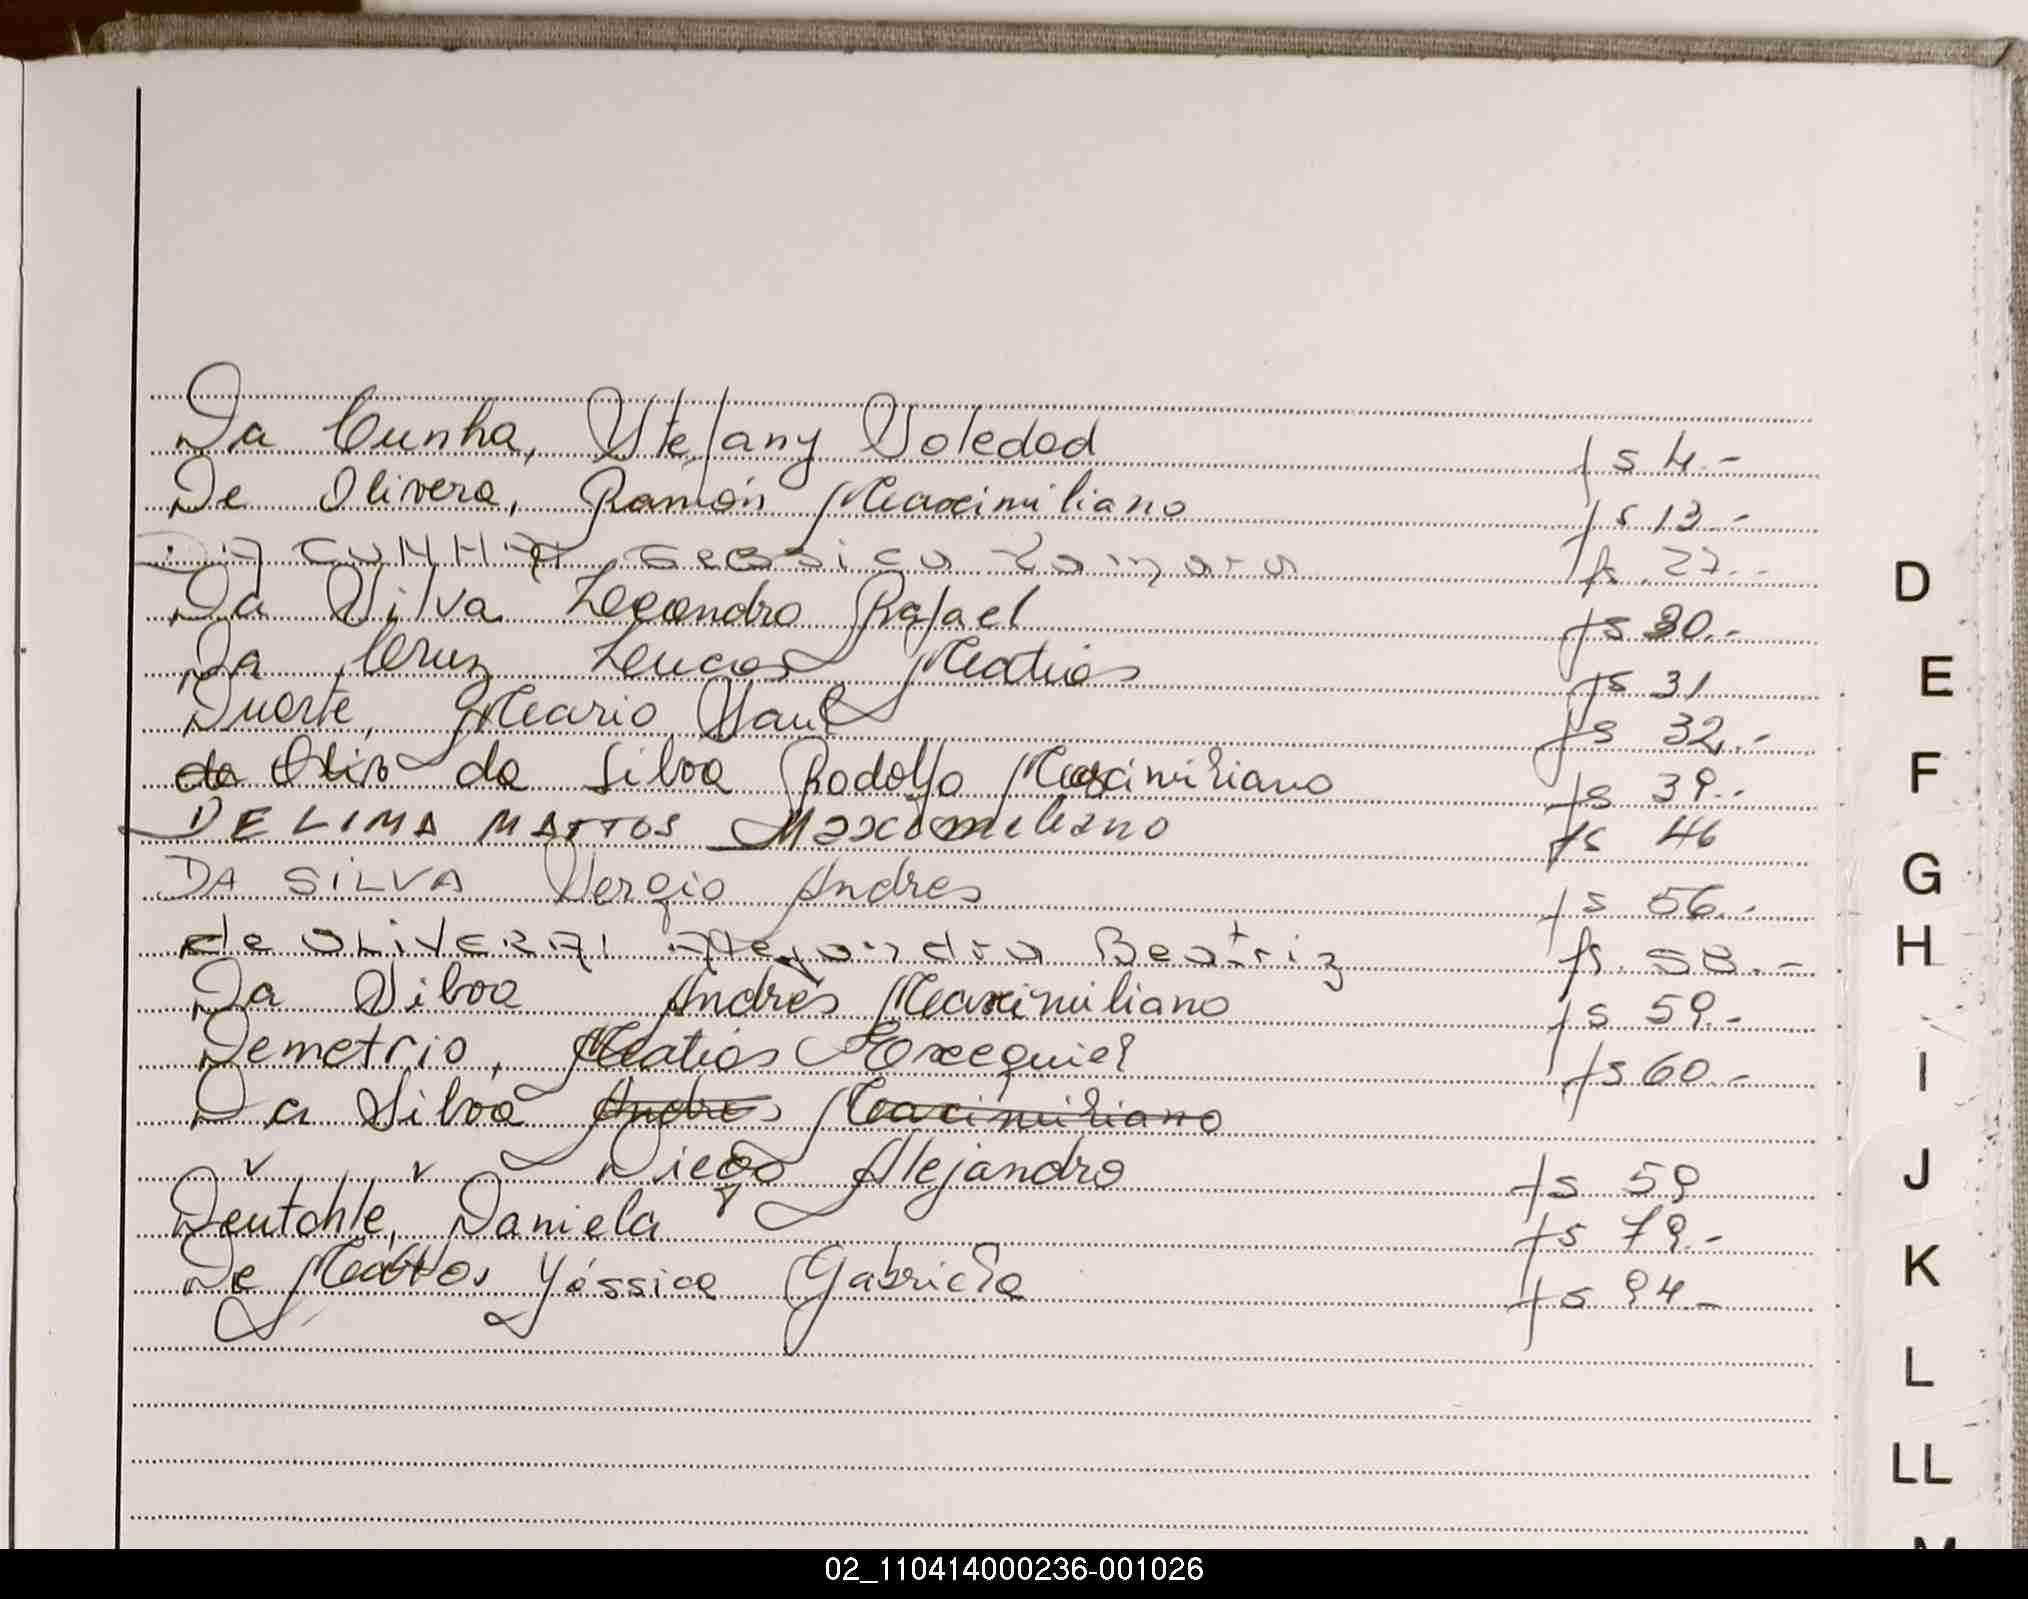 Da Cunha, Stefany Soledad fs 4.-
De Olivera, Ramón Maximiliano fs 13.-
DA CUNHA Gessica Tamara fs. 27.-
Da Silva Leandro Rafael fs 30.-
Da Cruz Lucas Matias fs 31
Duarte, Mario Saul fs 32.-
da Silva Rodolfo Maximiliano fs 39.-
DE LIMA MATTOS Maximiliano fs 46
DA SILVA Sergio Andres fs 56.-
de OLIVERA Alejandra Beatriz fs. 58.-
Da Silva Andrés Maximiliano fs 59.-
Demetrio, Matias Exequiel fs 60.-
Da Silva Andres Maximiliano
v v Diego Alejandro fs 59
Deutchle, Daniela fs 79.-
De Mattos Yéssica Gabriela fs 94.-
D
E
F
G
H
I
J
K
L
LL
M
02_110414000236-001026